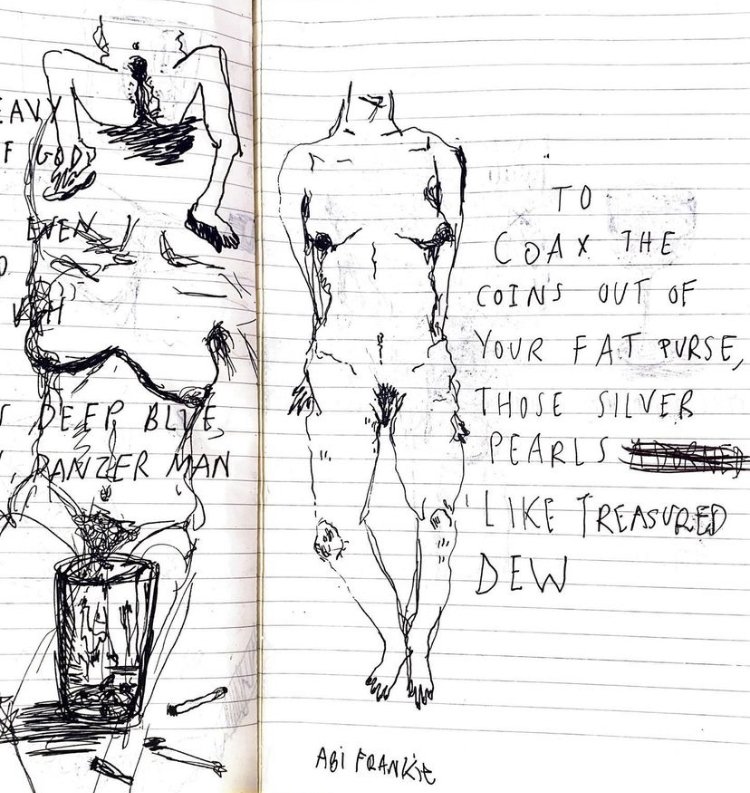 EAVY
F GOD,
EVEN
DEEP BLUE,
PANZER MAN
TO
COAX THE
COINS OUT OF
YOUR FAT PURSE,
THOSE SILVER
PEARLS
LIKE TREASURED
DEW
ABI FRANKIE